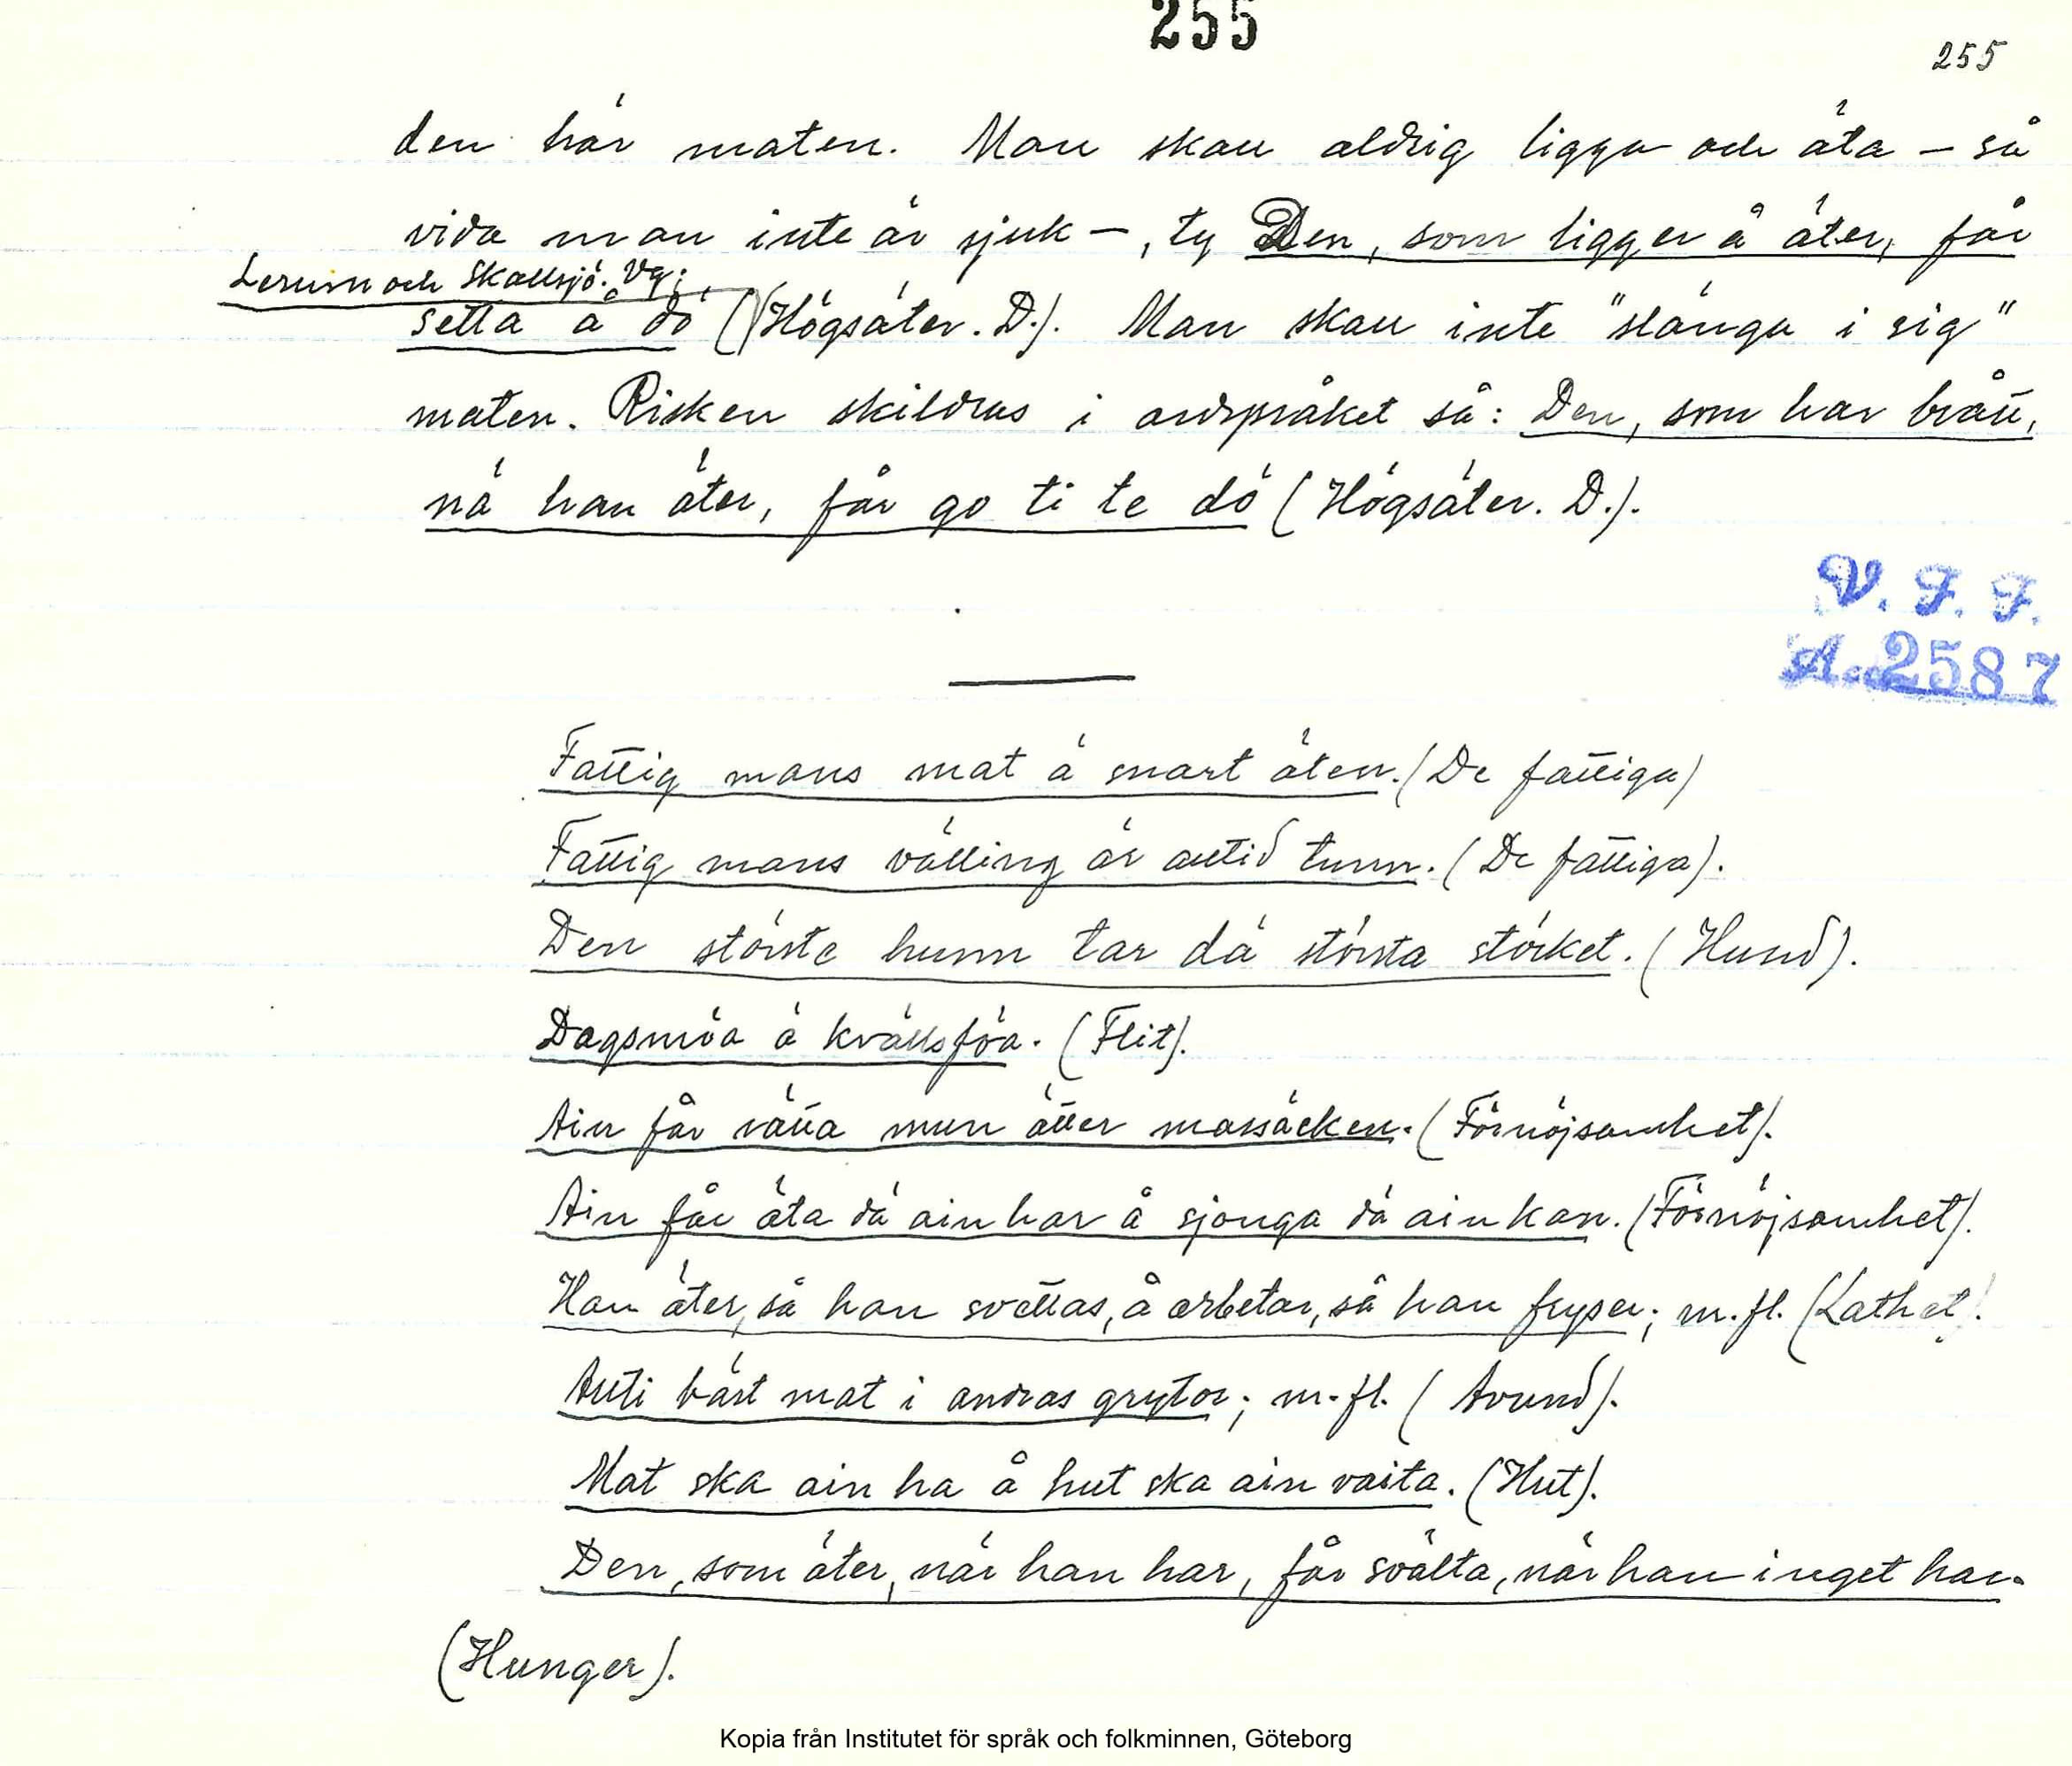 255
255
den här maten. Man skall aldrig ligga och äta – så
vida man inte är sjuk –, ty Den, som ligger å äter, får
Lerum och Skallsjö. Vg;
setta å dö (Högsäter. D.). Man skall inte "slänga i sig"
maten. Risken skildras i ordspråket så: Den, som har brått,
nä han äter, får go ti te dö (Högsäter. D.).
V. F. F.
A. 2587
Fattig mans mat ä snart äten. (De fattiga)
Fattig mans välling är alltid tunn. (De fattiga).
Den störste hunn tar dä största störket. (Hund).
Dagsmöa ä kvällsföa. (Flit).
Ain får rätta mun ätter massäcken. (Förnöjsamhet).
Ain får äta dä ain har å sjonga dä ain kan. (Förnöjsamhet).
Han äter, så han svettas, å arbetar, så han fryser; m.fl. (Lathet).
Allti bäst mat i andras grytor; m.fl. (Avund).
Mat ska ain ha å hut ska ain vaita. (Hut).
Den, som äter, när han har, får svälta, när han inget har.
(Hunger).
Kopia från Institutet för språk och folkminnen, Göteborg